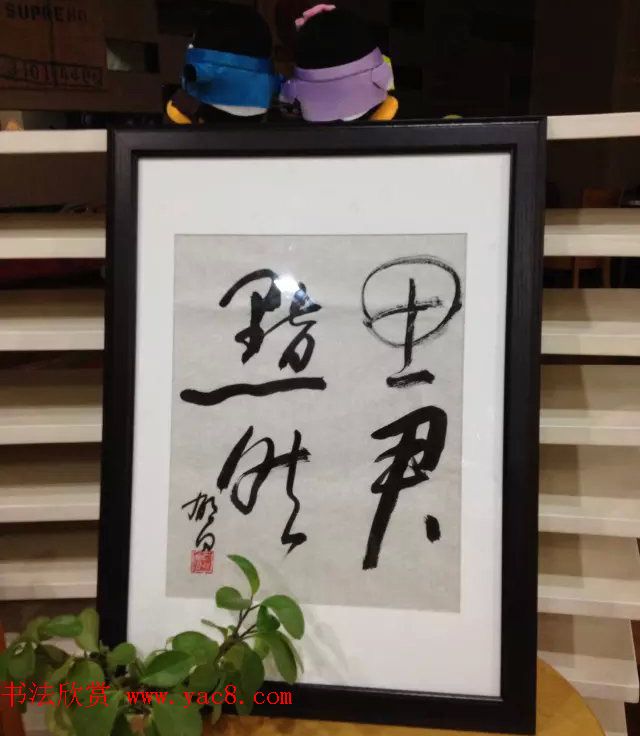 SUPREMO
思君
黯然
书法欣赏 www.yac8.com